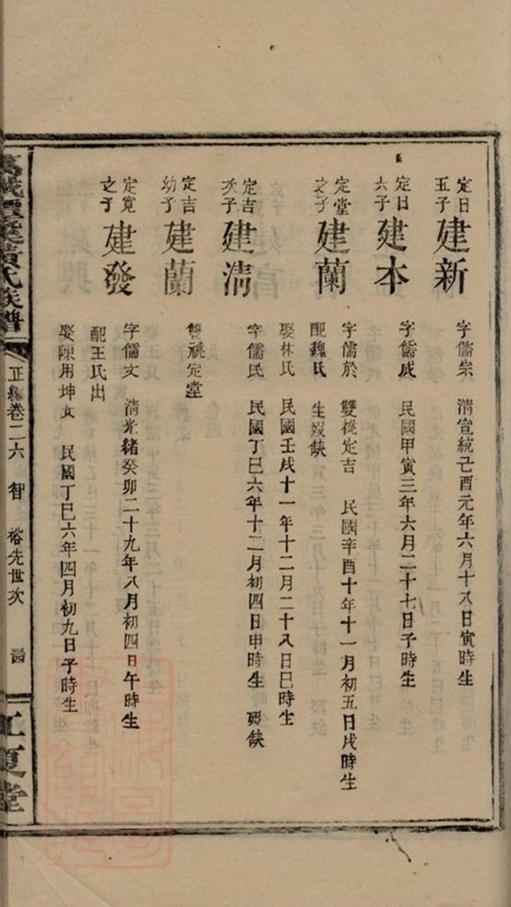 定日五子 建新 字儒崇 清宣統己酉元年六月十八日寅時生
定日六子 建本 字儒成 民國甲寅三年六月二十七日子時生
定堂之子 建蘭 字儒於 雙祧定吉 民國辛酉十年十一月初五日戌時生
配魏氏 生娶缺
娶林氏 民國壬戌十一年十二月二十八日巳時生
定吉次子 建清 字儒民 民國丁巳六年十二月初四日申時生 娶缺
定吉幼子 建蘭 雙祧定堂
定寬之子 建發 字儒文 清光緒癸卯二十九年八月初四日午時生
配王氏出
娶陳用坤女 民國丁巳六年四月初九日子時生
氏族譜 正編卷二六 智 裕先世次
江夏堂